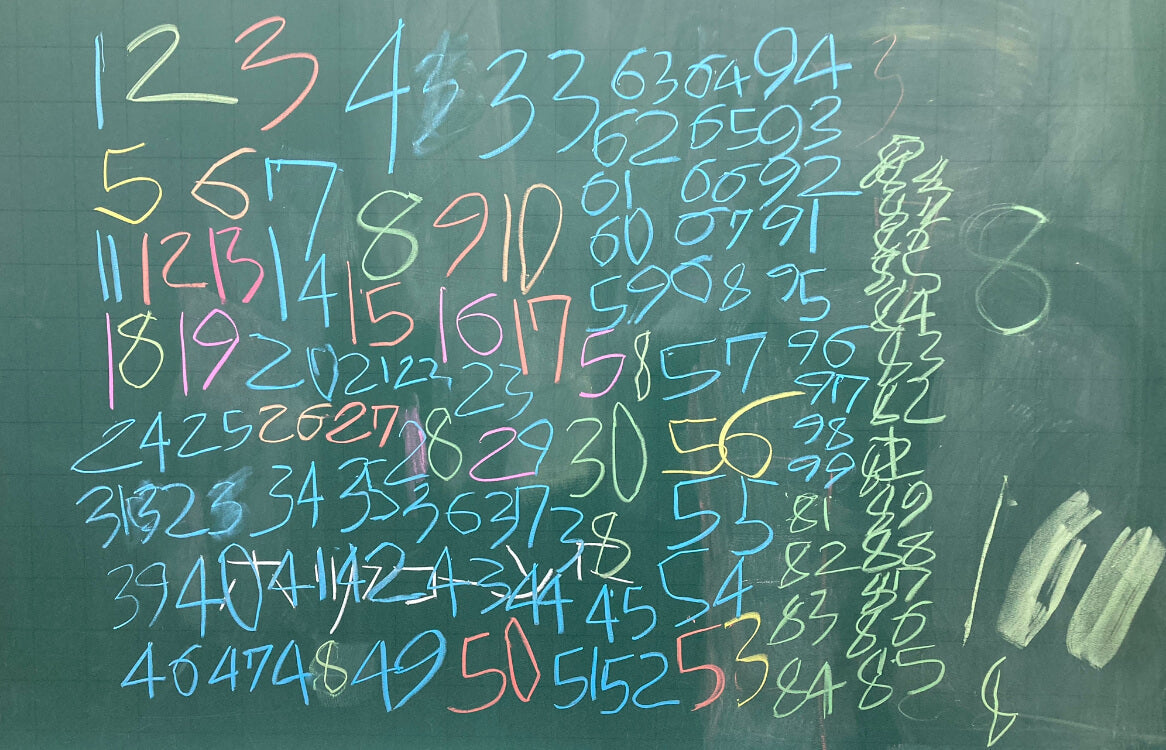 1 2 3 4 3 3 3 63 64 94
62 65 93
5 6 7 8 9 10 61 66 92
60 67 91
11 12 13 14 15 16 17 59 68 95
18 19 20 21 22 23 58 57 96
97
24 25 26 27 28 29 30 56 98
99
31 32 33 34 35 36 37 38 55 81 89
82 88
39 40 41 42 43 44 45 54 83 87
86
46 47 48 49 50 51 52 53 84 85
8
100
8